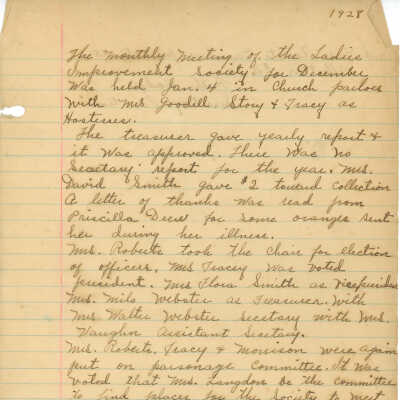 1928
The Monthly Meeting of the Ladies
Improvement Society for December
Was held Jan. 4 in Church parlors
With Mrs Goodell, Story & Tracy as
Hostesses.
The treasurer gave yearly report &
it Was approved. There Was No
Secetary report for the year. Mrs.
David Smith gave $2 toward collection
A letter of thanks Was read from
Priscilla Drew for some oranges sent
her during her illness.
Mrs. Roberts took the Chair for election
of officers. Mrs Tracey Was voted
president. Mrs Flora Smith as Vicepresident
Mrs. Milo Webster as Treasurer. With
Mrs Walter Webster secetary with Mrs.
Vaughn Assistant Secetary.
Mrs. Roberts, Tracy & Morrison were again
put on parsonage Committee. It Was
voted that Mrs. Langdon be the committee
to find places for the Society to meet